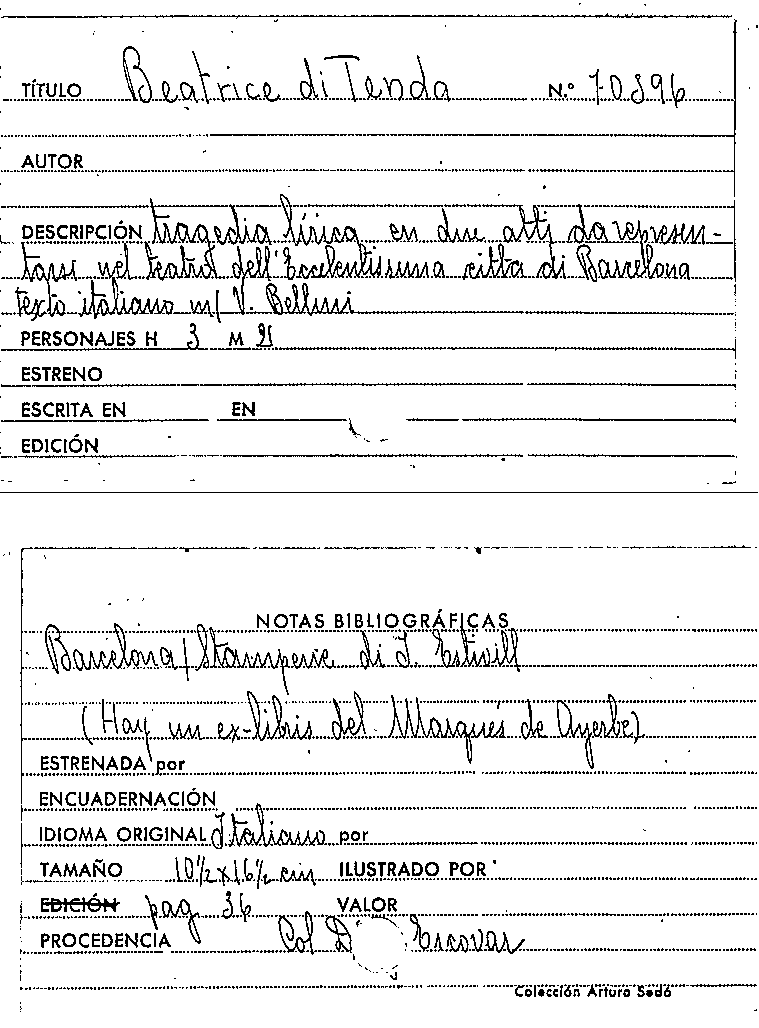 TÍTULO Beatrice di Tenda N.º 70896
AUTOR
DESCRIPCIÓN tragedia lírica en due atti da represen-
tarsi nel teatro dell'Eccelentissima citta di Barcelona
texto italiano m/ V. Bellini
PERSONAJES H 3 M
ESTRENO
ESCRITA EN EN
EDICIÓN
NOTAS BIBLIOGRÁFICAS
Barcelona / Stamperie di J. Estivill
(Hay un ex-libris del Marqués de Ayerbe)
ESTRENADA por
ENCUADERNACIÓN
IDIOMA ORIGINAL Italiano por
TAMAÑO 10½ x 16½ cm ILUSTRADO POR
EDICIÓN pag 36 VALOR
PROCEDENCIA Col D Escovar
Colección Arturo Sedó